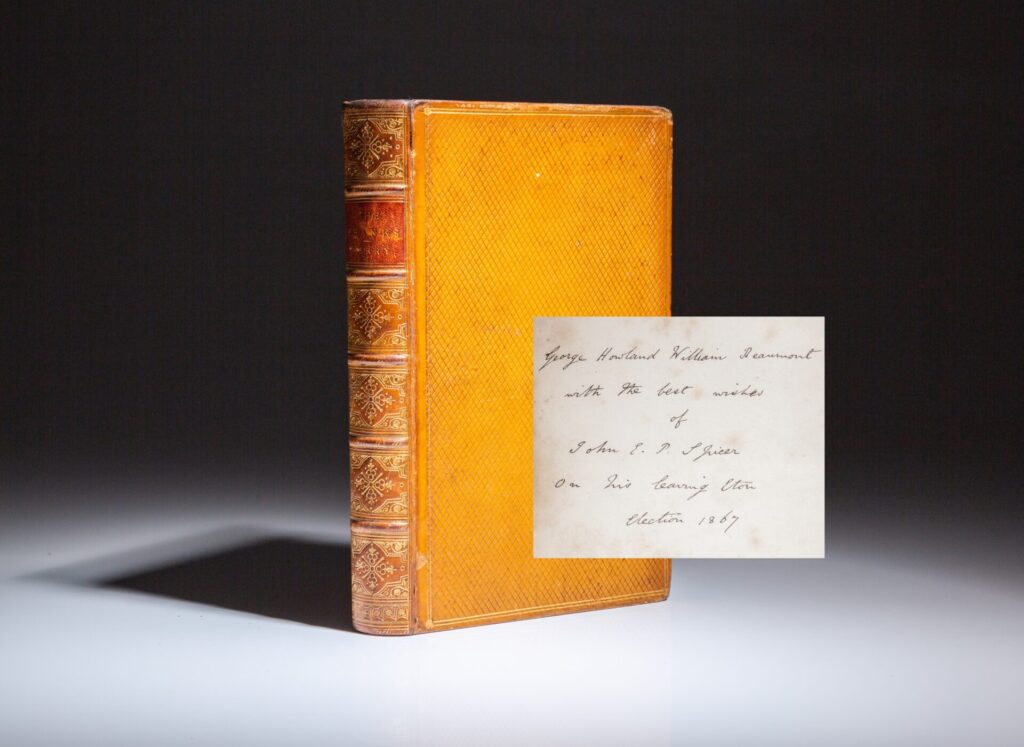 George Howland William Beaumont
with the best wishes
of
John E. P. Spicer
On his leaving Eton
Election 1867